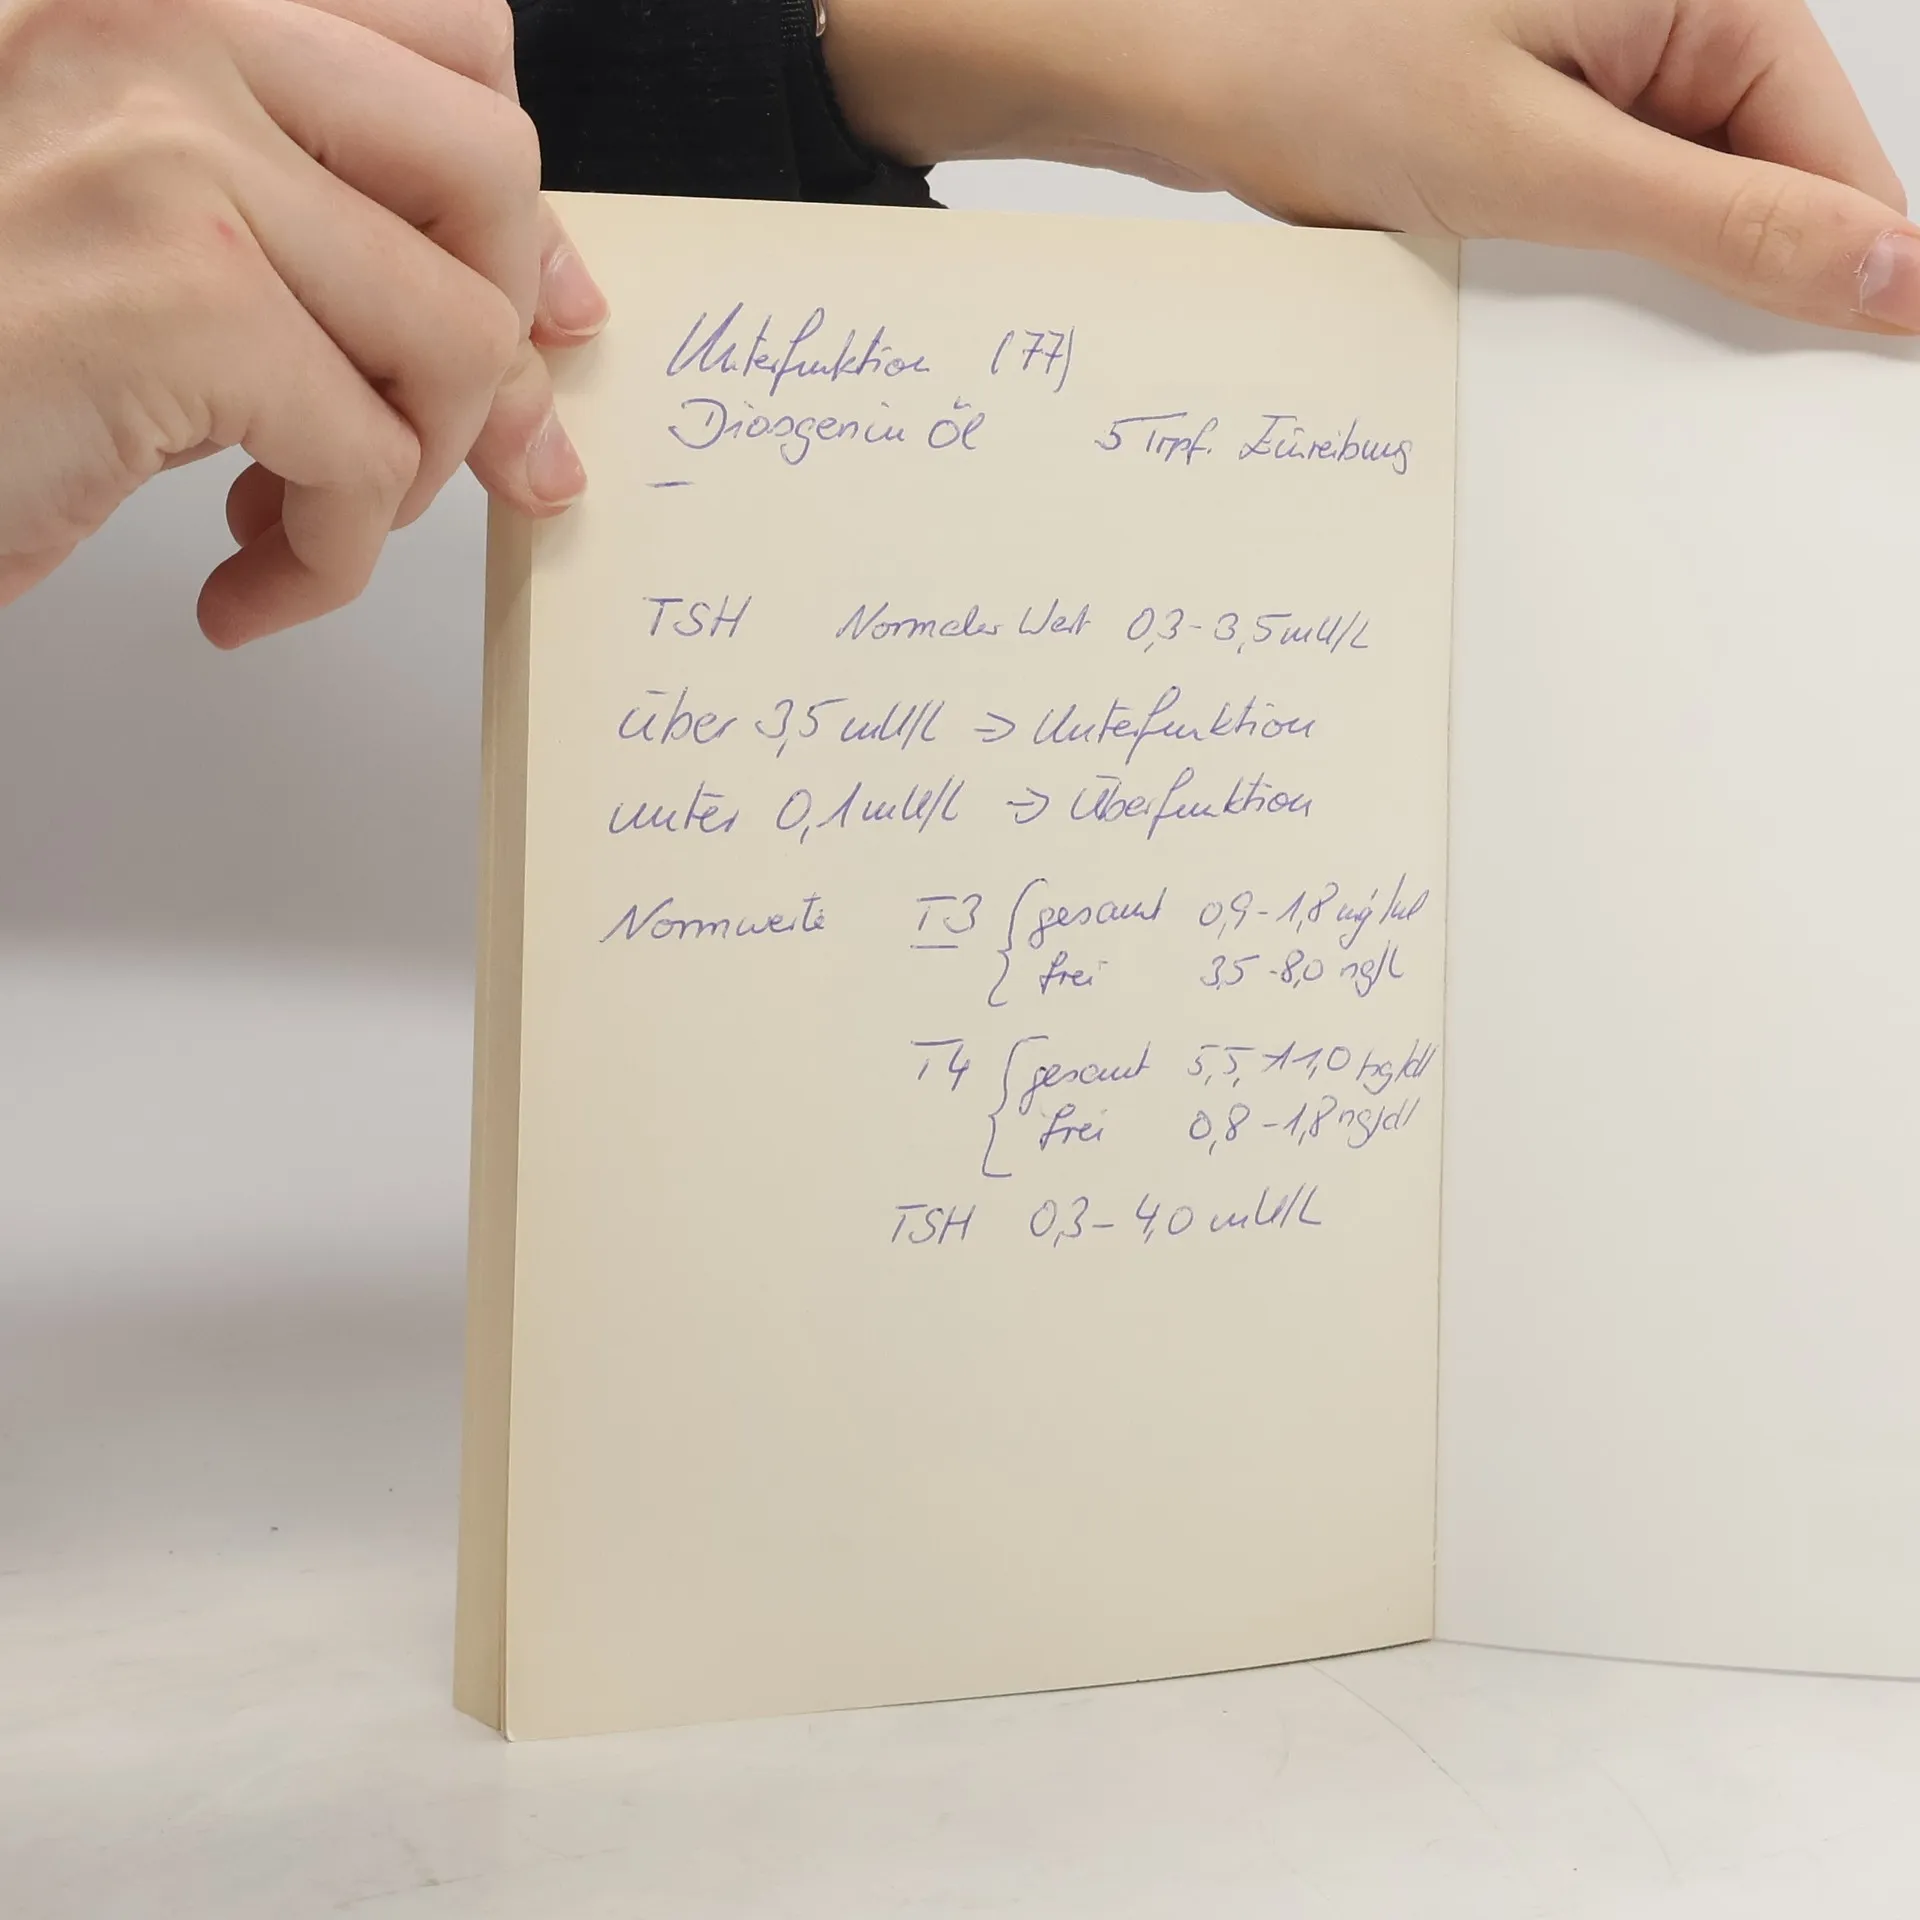 Unterfunktion (77)
Diosgenin Öl 5 Trpf. Einreibung
TSH Normaler Wert 0,3-3,5 mU/L
über 3,5 mU/L => Unterfunktion
unter 0,1 mU/L => Überfunktion
Normwerte T3 { gesamt 0,9-1,8 ng/ml
frei 3,5-8,0 ng/L
T4 { gesamt 5,5-11,0 µg/dl
frei 0,8-1,8 ng/dl
TSH 0,3-4,0 mU/L